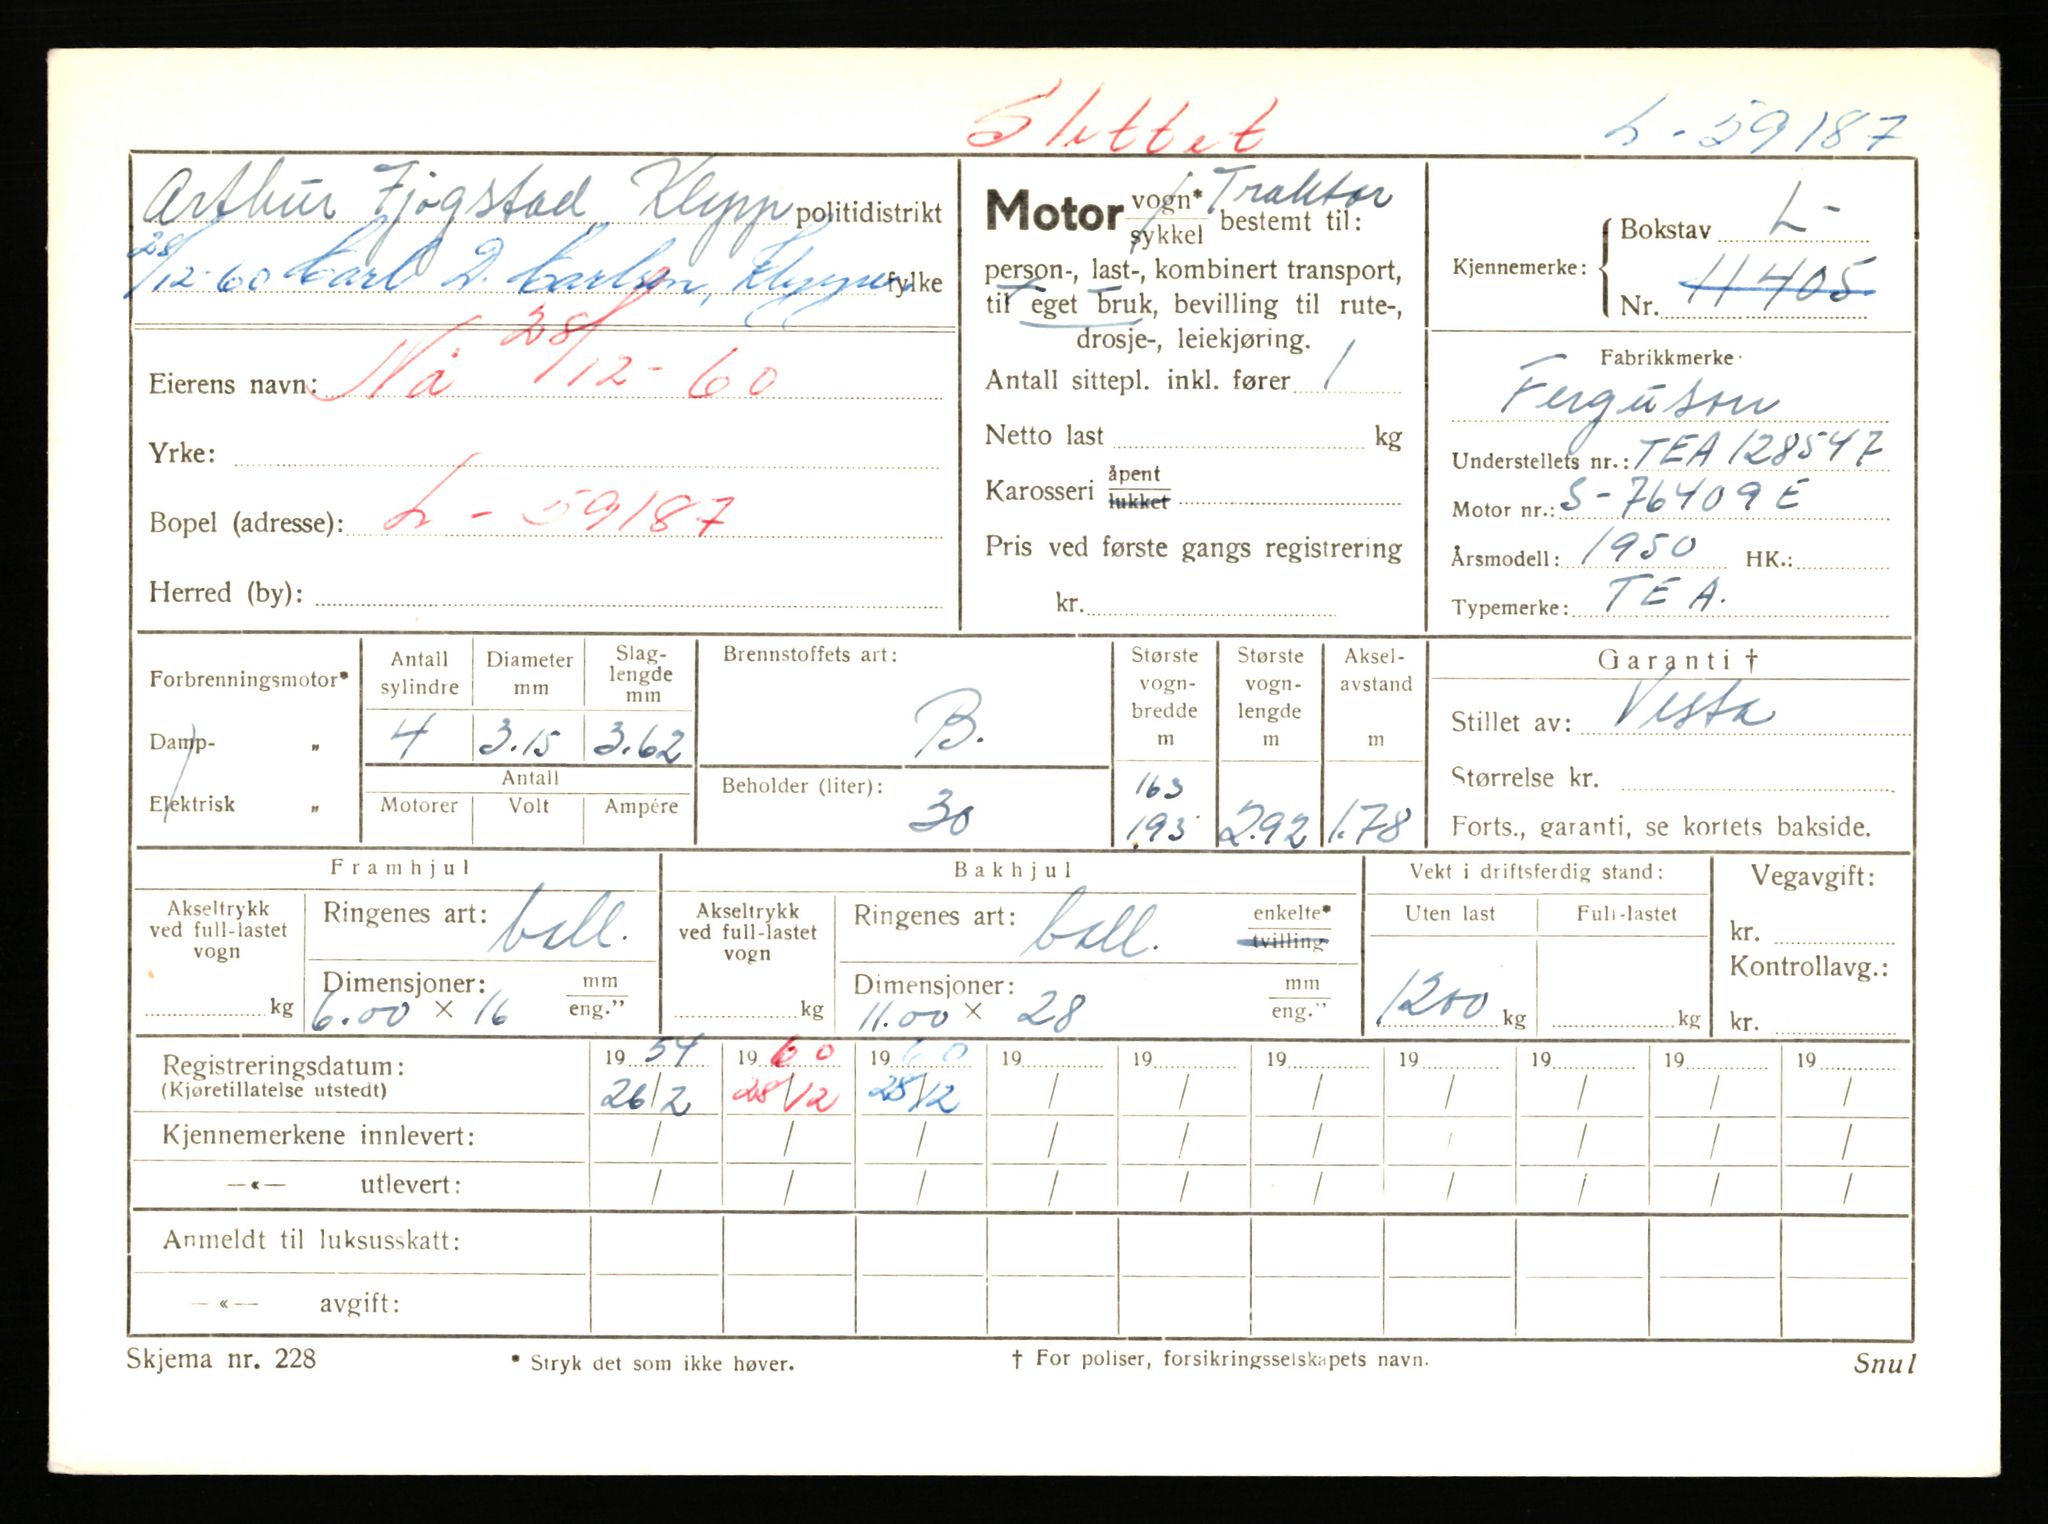 Slettet
L - 59187
Arthur Fjogstad Klepp politidistrikt
28/12-60 Carl D. Carlsen, fylke
Eierens navn: Nå 28/12-60
Yrke:
Bopel (adresse): L - 59187
Herred (by):
Motor vogn* / sykkel bestemt til: Traktor
person-, last-, kombinert transport,
til eget bruk, bevilling til rute-,
drosje-, leiekjøring.
Antall sittepl. inkl. fører 1
Netto last kg
Karosseri åpent / lukket
Pris ved første gangs registrering
kr.
Kjennemerke: Bokstav L-
Nr. 11405
Fabrikkmerke
Ferguson
Understellets nr.: TEA 128547
Motor nr.: S-76409E
Årsmodell: 1950 HK.:
Typemerke: TEA.
Forbrenningsmotor*
Damp- „
Elektrisk „
Antall sylindre 4
Diameter mm 3.15
Slag-lengde mm 3.62
Antall
Motorer Volt Ampére
Brennstoffets art: B.
Beholder (liter): 30
Største vogn-bredde m 163 193
Største vogn-lengde m 2.92
Aksel-avstand m 1.78
Garanti †
Stillet av: Vesta
Størrelse kr.
Forts., garanti, se kortets bakside.
Framhjul
Akseltrykk ved full-lastet vogn kg
Ringenes art: ball.
Dimensjoner: mm / eng.”
6.00 × 16
Bakhjul
Akseltrykk ved full-lastet vogn kg
Ringenes art: ball. enkelte* / tvilling
Dimensjoner: mm / eng.”
11.00 × 28
Vekt i driftsferdig stand:
Uten last Full-lastet
1200 kg kg
Vegavgift:
kr.
Kontrollavg.:
kr.
Registreringsdatum: 19 54 19 60 19 60 19 19 19 19 19 19 19
(Kjøretillatelse utstedt) 26/2 28/12 28/12 / / / / / / /
Kjennemerkene innlevert: / / / / / / / / / /
—«— utlevert: / / / / / / / / / /
Anmeldt til luksusskatt:
—«— avgift:
Skjema nr. 228 * Stryk det som ikke høver. † For poliser, forsikringsselskapets navn. Snul